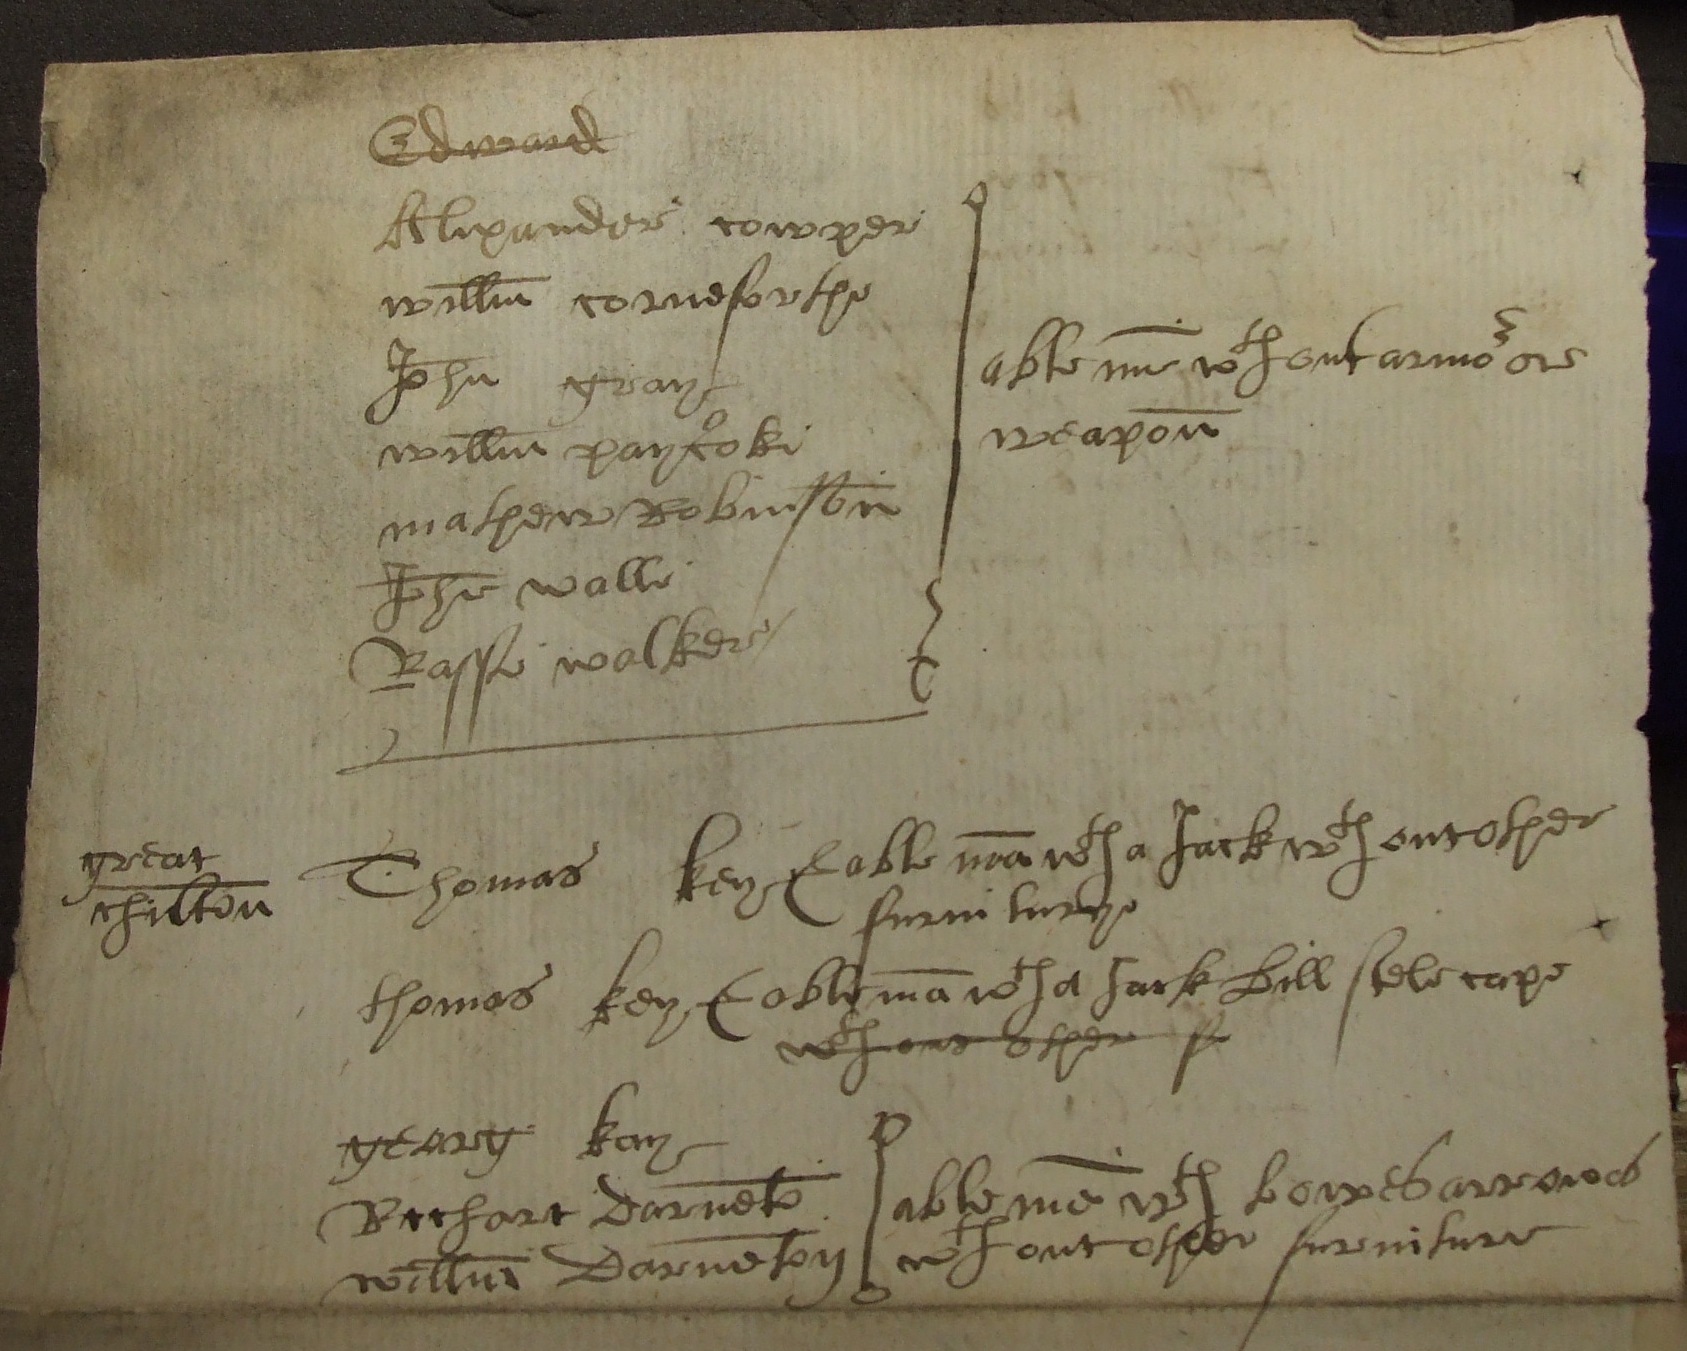 Edward
Alexander cowper
willm corneforthe
John gray
willm
mathew Robinson
John walle
Raffe walker
able me wth out armor ore
weapon
great
chilton
Thomas key able ma wth a Jack wth out other
furniturye
thomas key able ma wth a Jack bill stele cape
wth out other f
georg kay
Rechart Darneto
willm Darnetoy
able me wth bowes arrowes
wth out other furniture